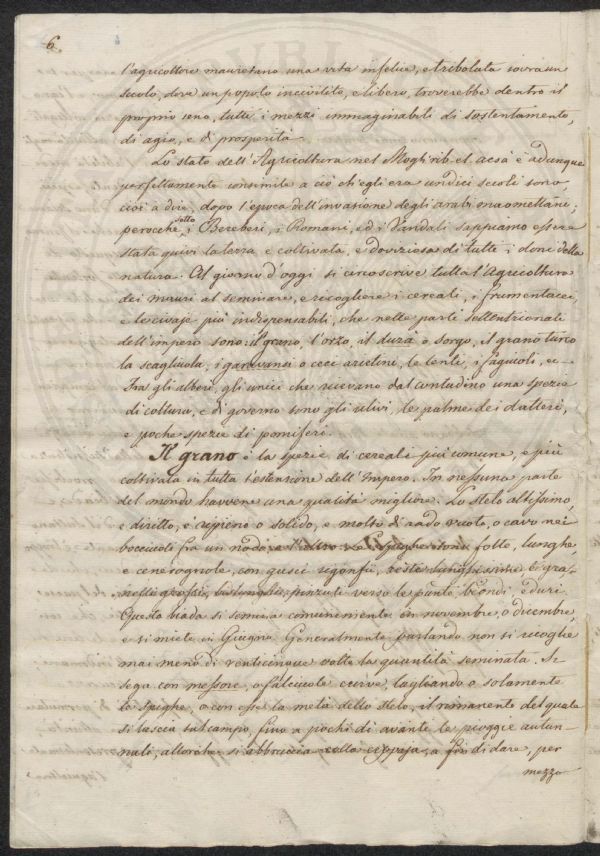 6.
l'agricoltore mauretano una vita infelice, e tribolata sovra un
suolo, dove un popolo incivilito, e libero, troverebbe dentro il
proprio seno, tutti i mezzi immaginabili di sostentamento,
di agio, e di prosperità.
Lo stato dell'Agricoltura nel Moghrib-el-acsà è adunque
perfettamente consimile a ciò ch'egli era undici secoli sono,
cioè a dire, dopo l'epoca dell'invasione degli arabi maomettani;
perocchè, sotto i Bereberi, i Romani, ed i Vandali sappiamo essere
stata quivi la terra e coltivata, e doviziosa di tutti i doni della
natura. Al giorno d'oggi si circoscrive tutta l'Agricoltura
dei mauri al seminare, e ricogliere i cereali, i frumentacei,
e le civaje più indispensabili, che nelle parti settentrionali
dell'impero sono: il grano, l'orzo, il dura o sorgo, il grano turco
la scagliuola, i garavansi o ceci arietini, le lenti, i fagiuoli, ec
Tra gli alberi, gli unici che ricevano dal contadino una spezie
di coltura, e di governo sono gli ulivi, le palme dei datteri,
e poche spezie di pomiferi.
Il grano è la spezie di cereali più comune, e più
coltivata in tutta l'estensione dell'Impero. In nessuna parte
del mondo havvene una qualità migliore. Lo stelo altissimo,
e diritto, è ripieno o solido, e molto di rado vuoto, o cavo nei
bocciuoli fra un nodo, e l'altro: le spighe sono folte, lunghe,
e cenerognole, con gusci rigonfii, reste lunghissime e gra-
nelli grossi, bislunghi, pinzuti verso le punte biondi, e duri.
Questa biada si semina comunemente in novembre, o dicembre,
e si miete in Giugno. Generalmente parlando non si ricoglie
mai meno di venticinque volte la quantità seminata. Si
sega con messore, o falciuole curve, tagliando o solamente
le spighe, o con esse la metà dello stelo, il rimanente del quale
si lascia sul campo, fino a pochi dì avanti le pioggie autun-
nali, allorchè si abbruccia colla ceppaja, a fin di dare, per
mezzo